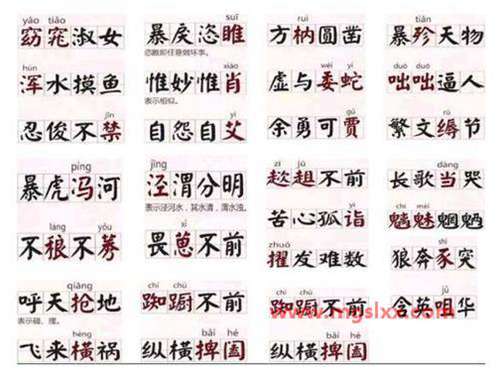 yǎo tiǎo
窈窕淑女
hún
浑水摸鱼
jīn
忍俊不禁
píng
暴虎冯河
láng yǒu
不稂不莠
qiāng
呼天抢地
表示碰、撞。
hèng
飞来横祸
suī
暴戾恣睢
恣睢即任意做坏事。
惟妙惟肖
表示相似。
yì
自怨自艾
jīng
泾渭分明
表示泾河水,其水清,渭水浊。
xǐ
畏葸不前
chí chú
踟蹰不前
bǎi hé
纵横捭阖
ruì
方枘圆凿
wēi yí
虚与委蛇
gǔ
余勇可贾
zī jū
趑趄不前
yì
苦心孤诣
zhuó
擢发难数
chí chú
踟蹰不前
bǎi hé
纵横捭阖
tiǎn
暴殄天物
duō duō
咄咄逼人
rù
繁文缛节
dàng
长歌当哭
chī mèi
魑魅魍魉
shǐ
狼奔豕突
jǔ
含英咀华